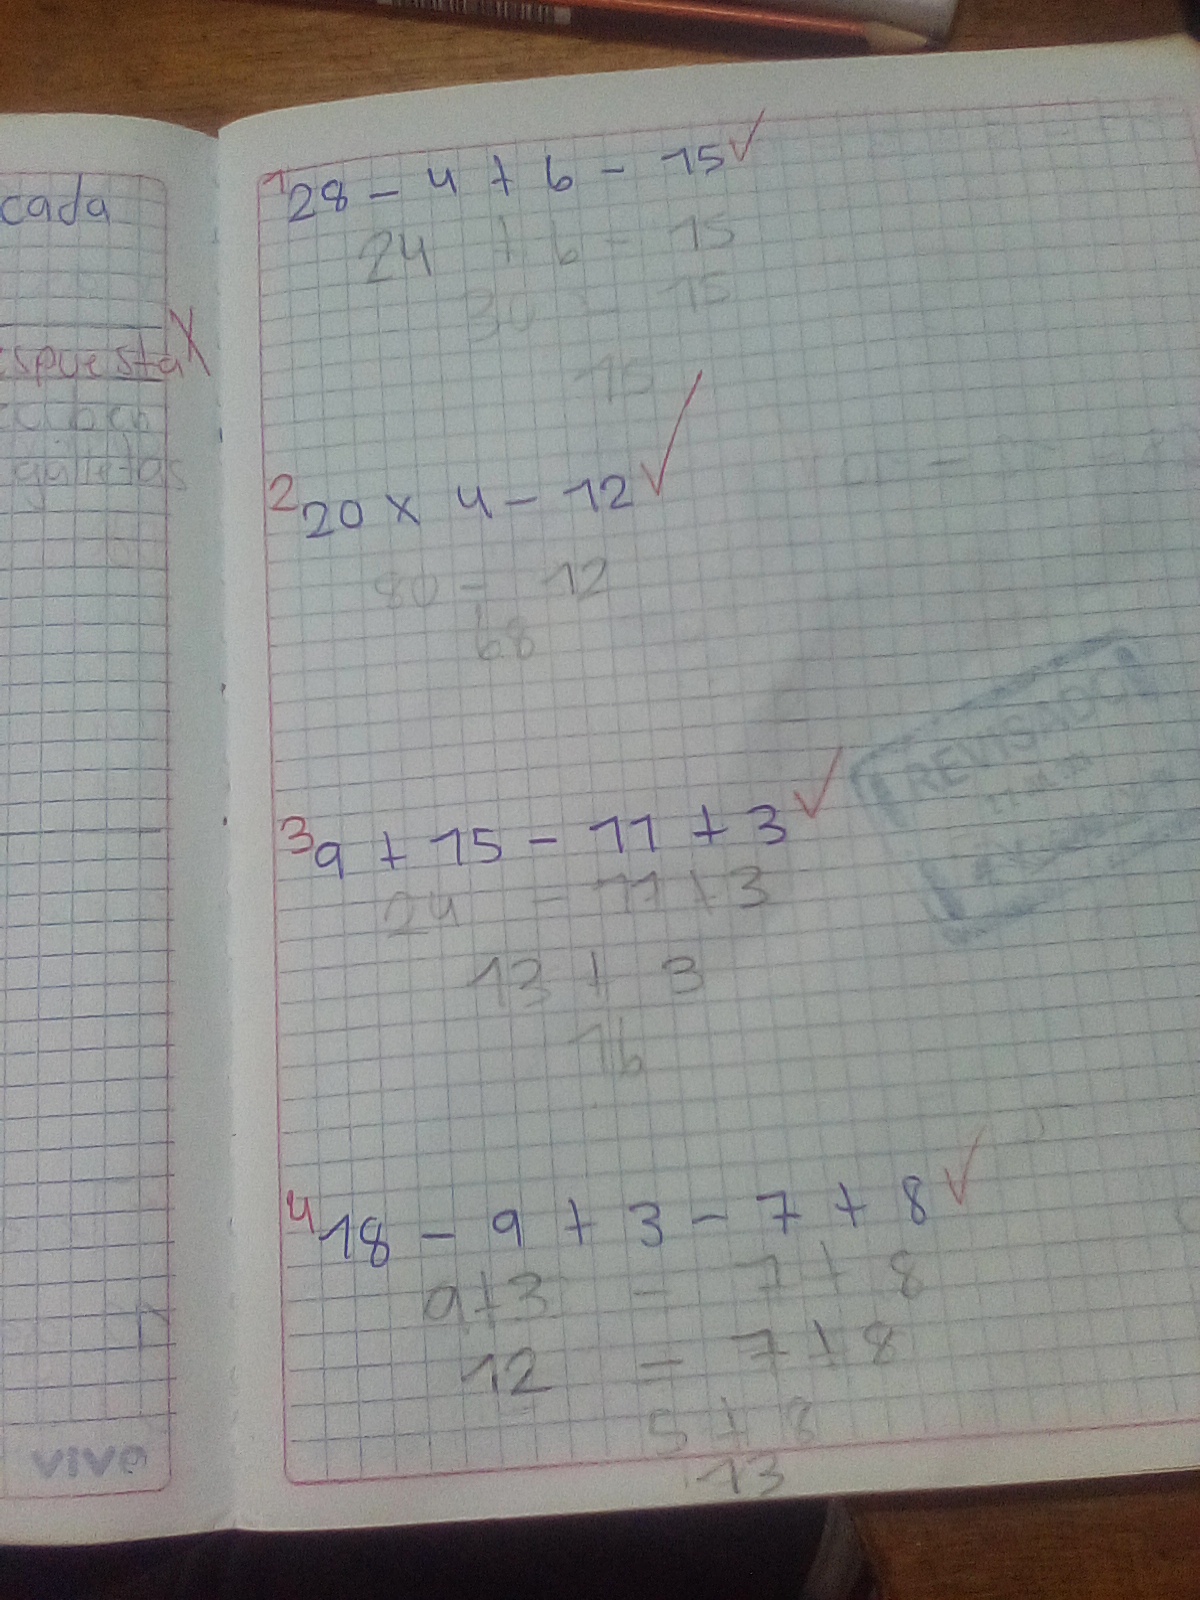 cada
espuesta
galletas
vivo
1 28 - 4 + 6 - 15
24 + 6 - 15
30 - 15
15
2 20 x 4 - 12
80 - 12
68
3 9 + 15 - 11 + 3
24 - 11 + 3
13 + 3
16
REVISADO
4 18 - 9 + 3 - 7 + 8
9+3 - 7 + 8
12 - 7 + 8
5 + 8
13